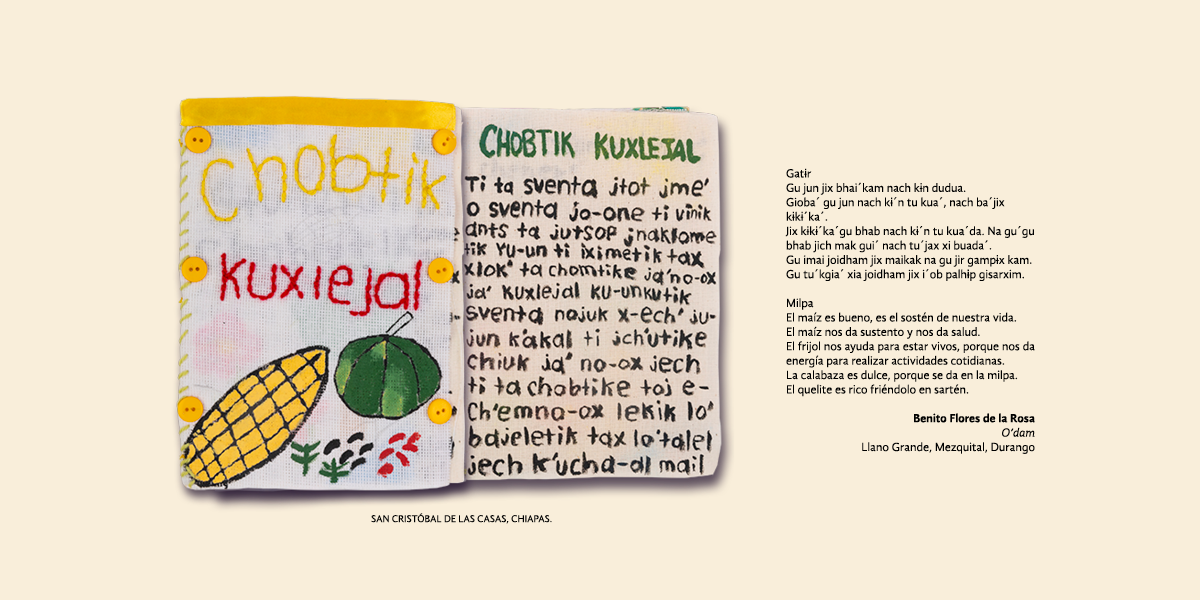 Chobtik
kuxlejal
CHOBTIK KUXLEJAL
Ti ta sventa jtot jme'
o sventa jo-one ti vinik
ants ta jutsop jnaklome
tik Yu-un ti iximetik tax
xlok' ta chomtike ja' no-ox
ja' kuxlejal ku-unkutik
sventa nojuk x-ech' ju-
jun k'akal ti jch'utike
chiuk ja' no-ox jech
ti ta chobtike toj e-
ch'emna-ox lekik lo'
bajeletik tax lo'talel
jech k'ucha-al mail
SAN CRISTÓBAL DE LAS CASAS, CHIAPAS.
Gatɨr
Gu jun jix bhai´kam nach kɨn dudua.
Gioba´ gu jun nach kɨ´n tu kua´, nach ba´jix
kɨkɨ´ka´.
Jix kɨkɨ´ka´gu bhab nach kɨ´n tu kua´da. Na gu´gu
bhab jich mak gui´ nach tu´jax xi buada´.
Gu imai joidham jix maikak na gu jir gampɨx kam.
Gu tu´kgia´ xia joidham jix i´ob palhɨp gisarxim.
Milpa
El maíz es bueno, es el sostén de nuestra vida.
El maíz nos da sustento y nos da salud.
El frijol nos ayuda para estar vivos, porque nos da
energía para realizar actividades cotidianas.
La calabaza es dulce, porque se da en la milpa.
El quelite es rico friéndolo en sartén.
Benito Flores de la Rosa
O'dam
Llano Grande, Mezquital, Durango